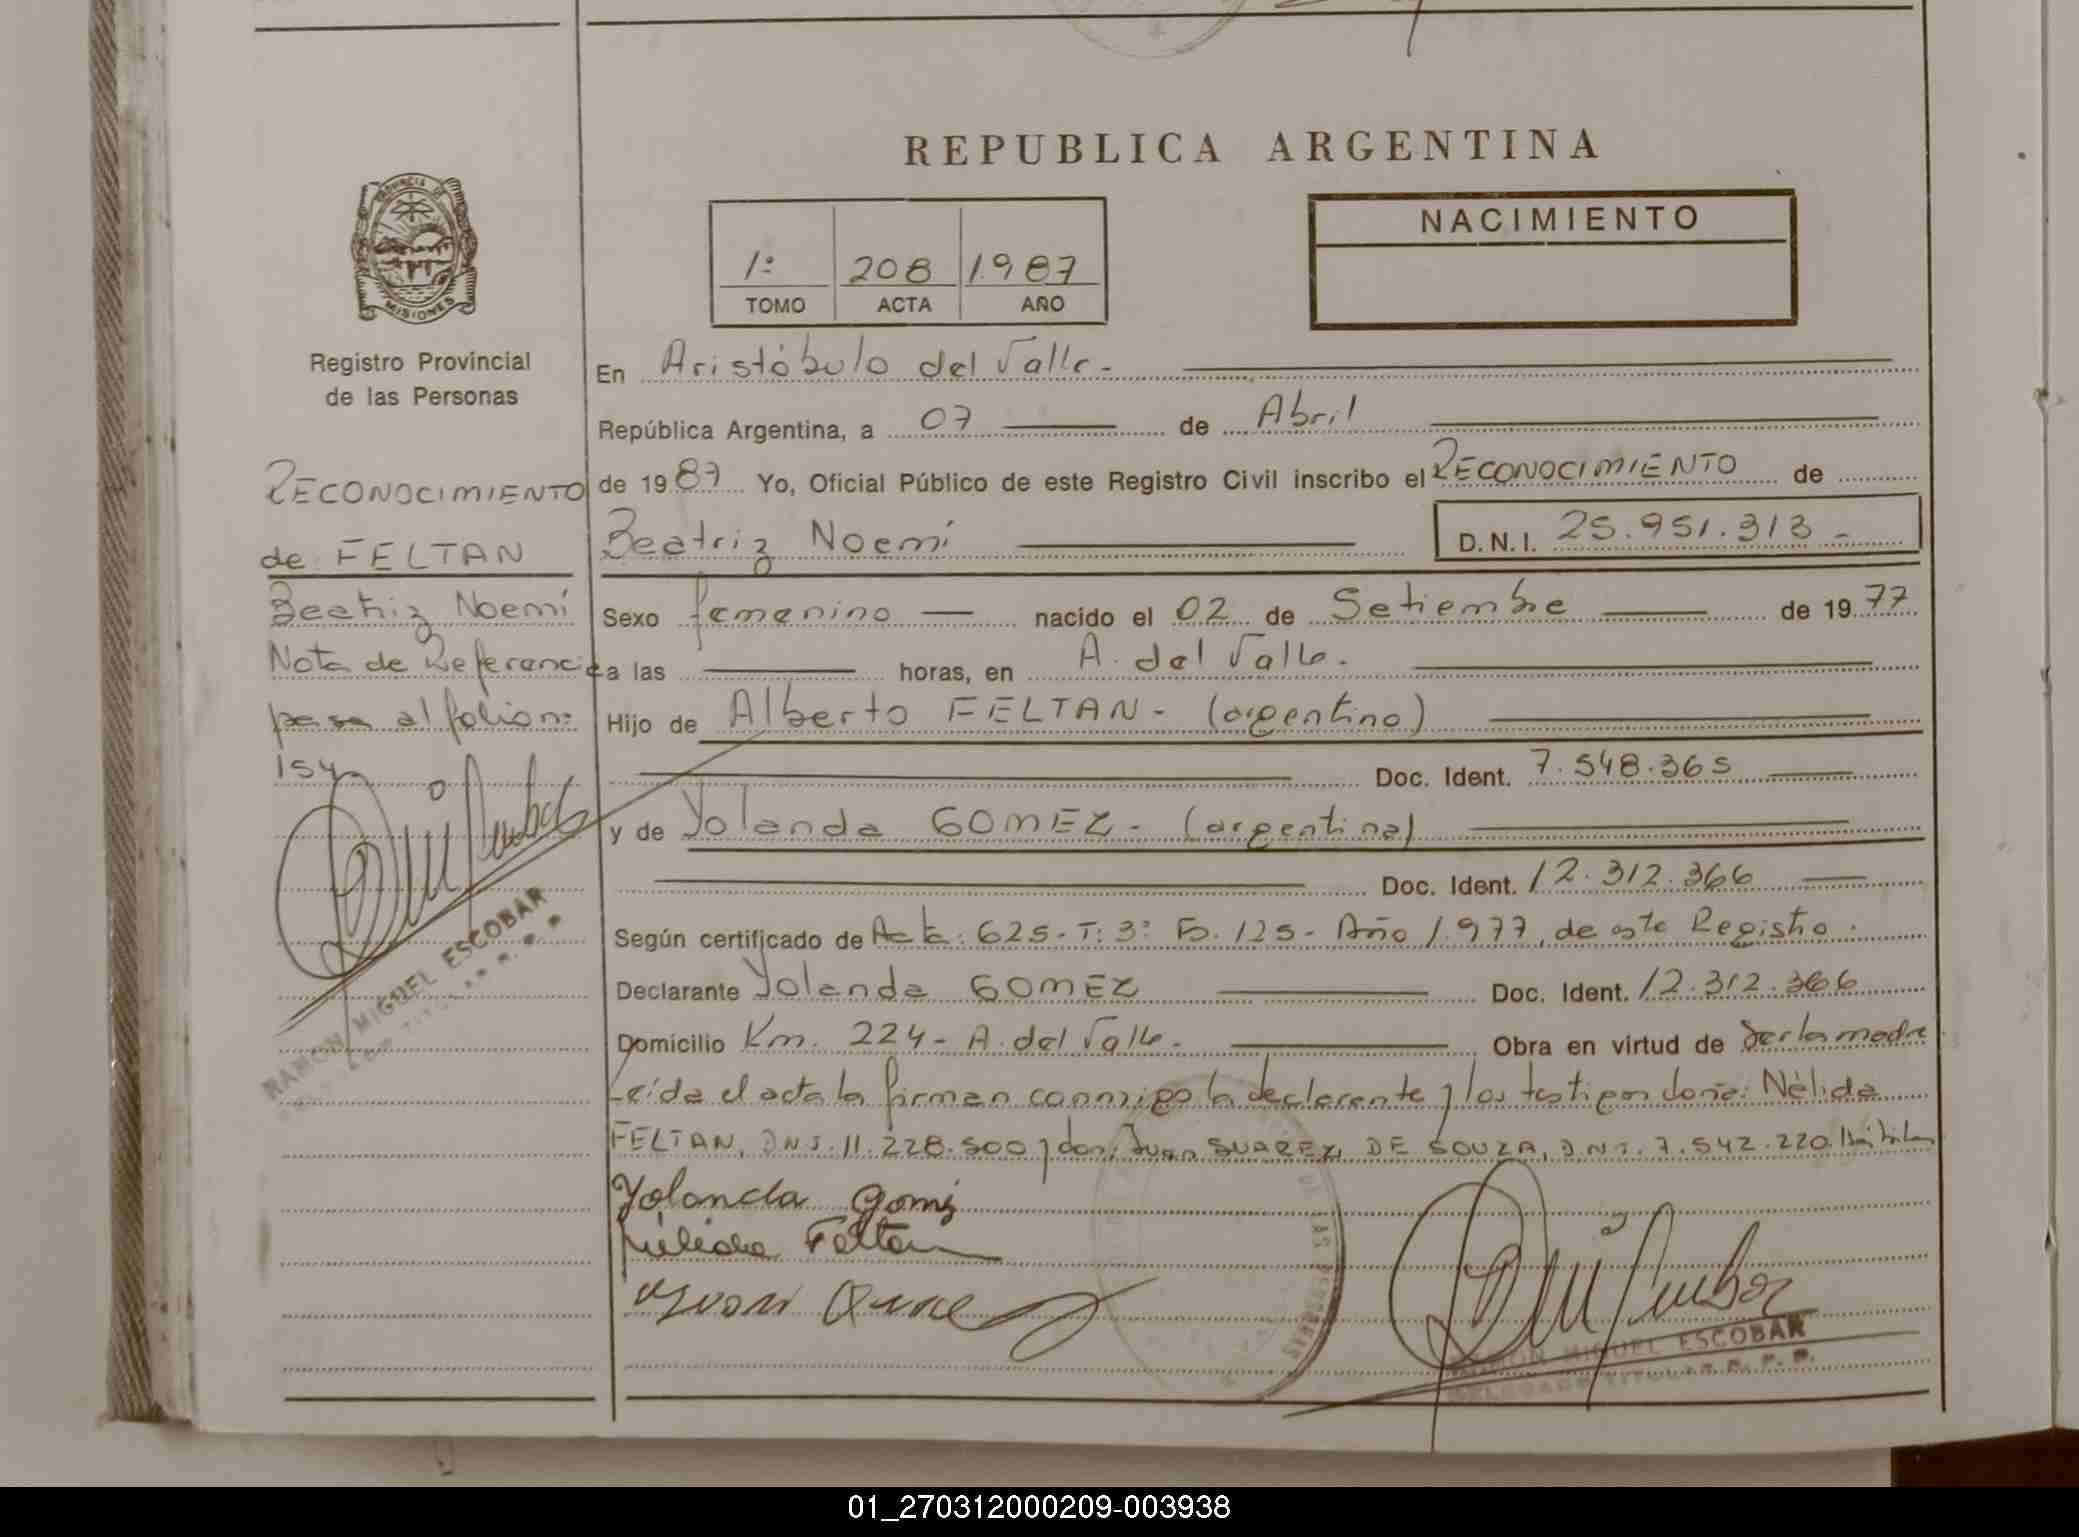 REPUBLICA ARGENTINA
PROVINCIA DE
MISIONES
Registro Provincial
de las Personas
1º 208 1.987
TOMO ACTA AÑO
NACIMIENTO
RECONOCIMIENTO
de FELTAN
Beatriz Noemí
Nota de Referencia
pasa al folio nº
154
RAMON MIGUEL ESCOBAR
En Aristóbulo del Valle.-
República Argentina, a 07 de Abril
de 1987 Yo, Oficial Público de este Registro Civil inscribo el RECONOCIMIENTO de
Beatriz Noemí D.N.I. 25.951.313 -
Sexo femenino nacido el 02 de Setiembre de 1977
a las horas, en A. del Valle.
Hijo de Alberto FELTAN - (argentino)
Doc. Ident. 7.548.365
y de Yolanda GOMEZ - (argentina)
Doc. Ident. 12.312.366
Según certificado de Acta: 625 - T: 3º Fº. 125 - Año 1.977, de este Registro.
Declarante Yolanda GOMEZ Doc. Ident. 12.312.366
Domicilio Km. 224 - A. del Valle. Obra en virtud de ser la madre.
Leída el acta la firman conmigo la declarante y los testigos doña: Nélida
FELTAN, DNI. 11.228.500 y don: Juan SUAREZ DE SOUZA, DNI. 7.542.220
Yolanda Gomez
Nélida Feltan
RAMON MIGUEL ESCOBAR
DELEGADO TITULAR R. P. P.
01_270312000209-003938